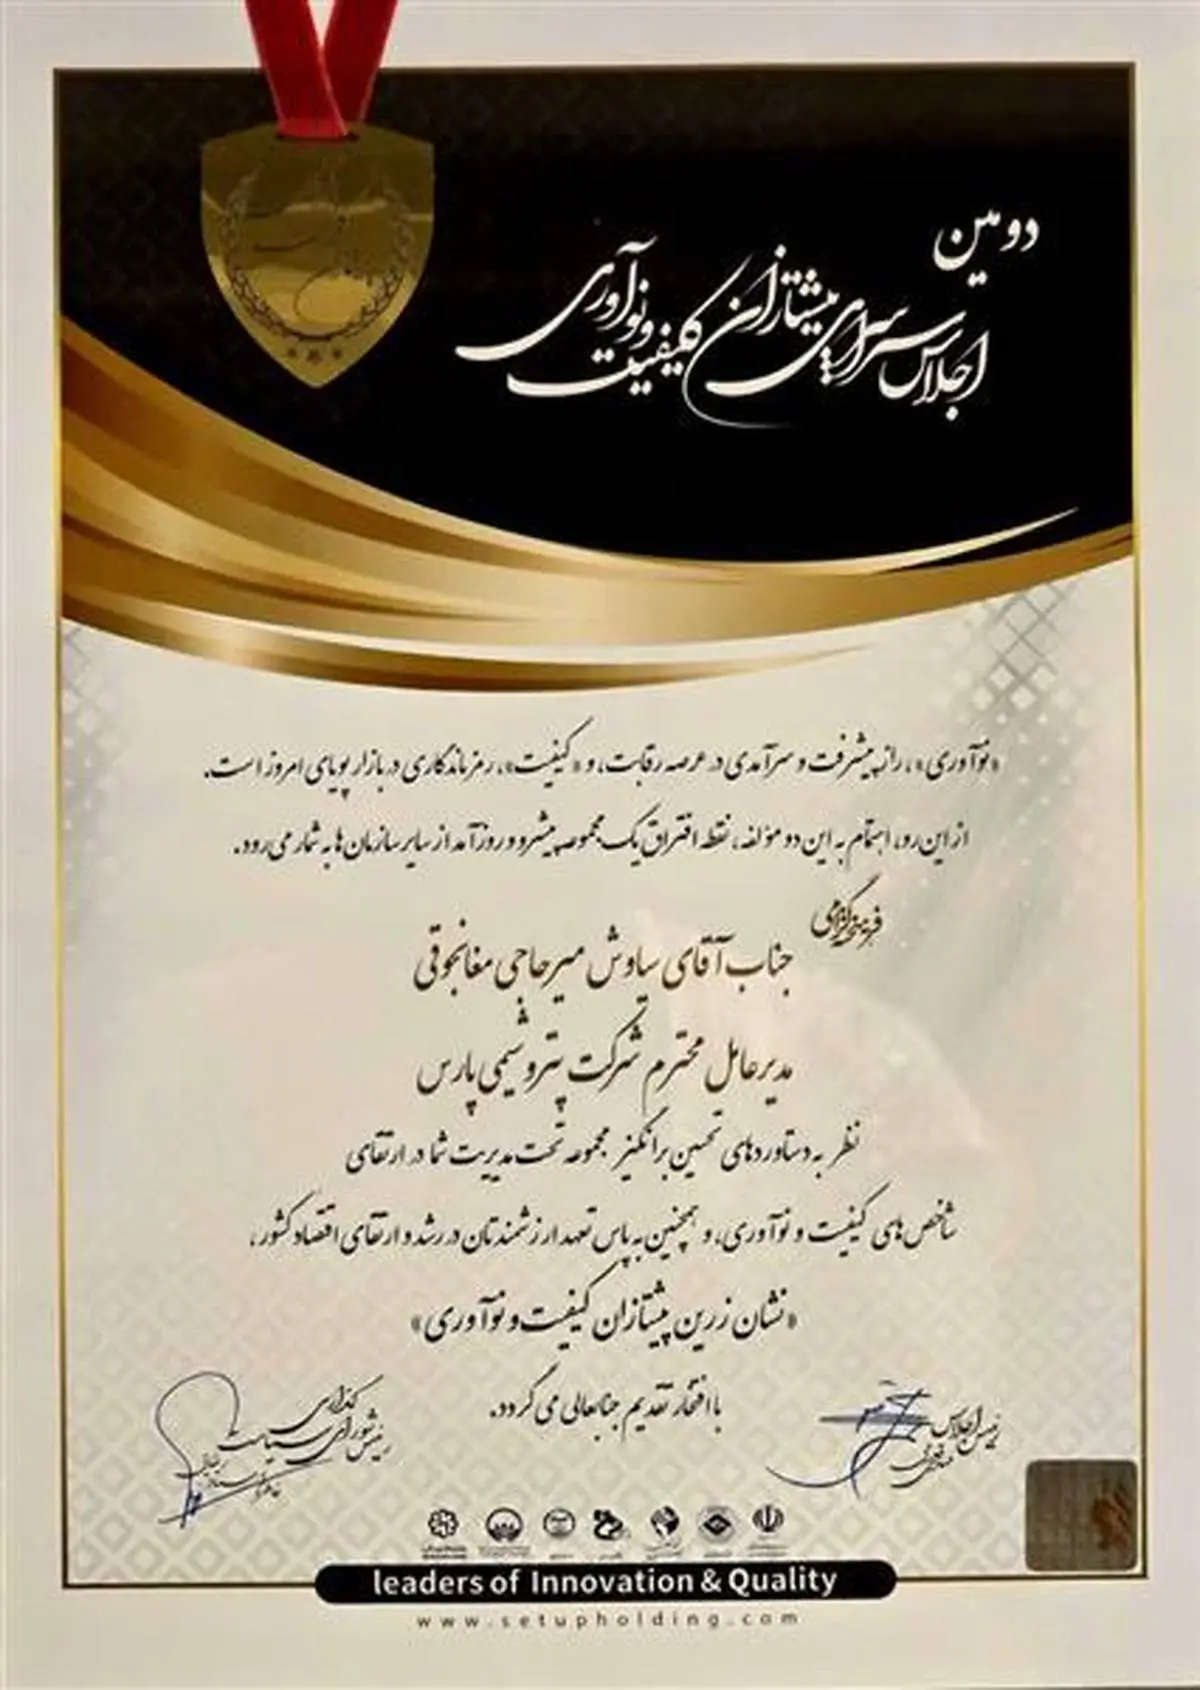 دومین
اجلاس سراسری پیشتازان کیفیت و نوآوری
«نوآوری»، راز پیشرفت و سرآمدی در عرصه رقابت، و «کیفیت»، رمز ماندگاری در بازار پویای امروز است.
از این رو، اهتمام به این دو مؤلفه، نقطه افتراق یک مجموعه پیشرو و روزآمد از سایر سازمان ها به شمار می رود.
فرهیخته گرامی
جناب آقای سیاوش میرحاجی مغانجوقی
مدیرعامل محترم شرکت پتروشیمی پارس
نظر به دستاوردهای تحسین برانگیز مجموعه تحت مدیریت شما در ارتقای
شاخص های کیفیت و نوآوری، و همچنین به پاس تعهد ارزشمندتان در رشد و ارتقای اقتصاد کشور،
«نشان زرین پیشتازان کیفیت و نوآوری»
با افتخار تقدیم جنابعالی می گردد.
رئیس اجلاس
رئیس شورای سیاست گذاری
leaders of Innovation & Quality
www.setupholding.com